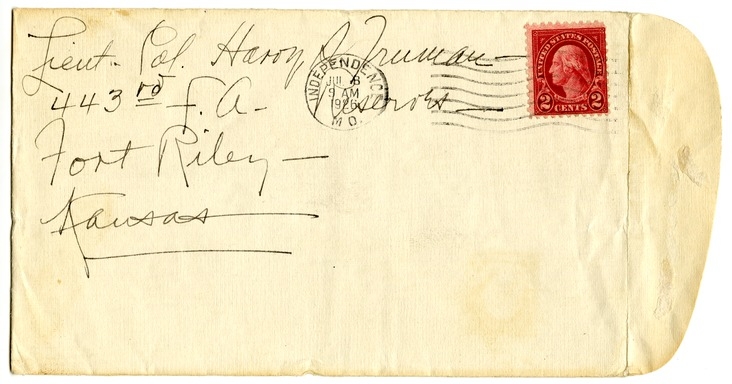 Lieut. Col. Harry S. Truman—
443rd F. A— Reserves—
Fort Riley—
Kansas
INDEPENDENCE
JUL 8
9 AM
1926
MO.
UNITED STATES POSTAGE
2 CENTS 2